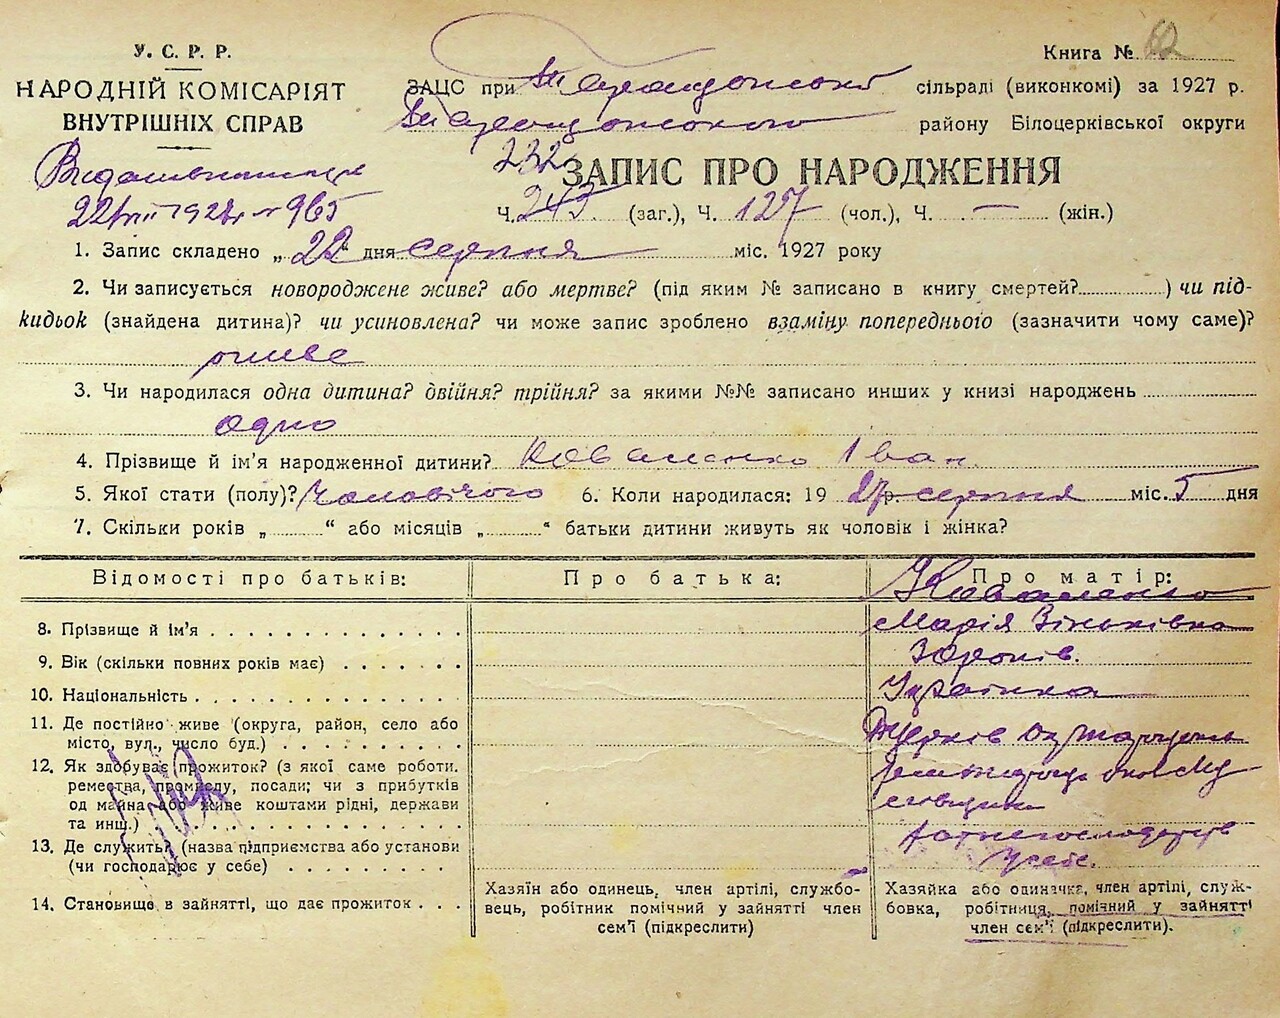 У. С. Р. Р.
НАРОДНІЙ КОМІСАРІЯТ
ВНУТРІШНІХ СПРАВ
Книга № 62
ЗАЦС при Таращанські сільраді (виконкомі) за 1927 р.
Таращанського району Білоцерківської округи
965
232
ЗАПИС ПРО НАРОДЖЕННЯ
Ч. 243. (заг.), Ч. 127 (чол.), Ч. — (жін.)
1. Запис складено „22“ дня серпня міс. 1927 року
2. Чи записується новороджене живе? або мертве? (під яким № записано в книгу смертей?............) чи під-
кидьок (знайдена дитина)? чи усиновлена? чи може запис зроблено взаміну попереднього (зазначити чому саме)?
живе
3. Чи народилася одна дитина? двійня? трійня? за якими №№ записано инших у книзі народжень
одно
4. Прізвище й ім'я народженної дитини? Коваленко Іван
5. Якої стати (полу)? чоловічого 6. Коли народилася: 19 27 р. серпня міс. 5 дня
7. Скільки років „.........“ або місяців „.........“ батьки дитини живуть як чоловік і жінка?
Відомості про батьків: Про батька: Про матір:
Коваленко
8. Прізвище й ім'я Марія
9. Вік (скільки повних років має)
10. Національність Українка
11. Де постійно живе (округа, район, село або
місто, вул., число буд.)
12. Як здобуває прожиток? (з якої саме роботи.
ремества, промислу, посади; чи з прибутків
од майна або живе коштами рідні, держави
та инш.)
13. Де служить? (назва підприємства або установи
(чи господарює у себе) у себе.
14. Становище в зайнятті, що дає прожиток
Хазяїн або одинець, член артілі, службо-
вець, робітник помічний у зайнятті член
сем'ї (підкреслити)
Хазяйка або одиначка, член артілі, служ-
бовка, робітниця, помічний у зайнятті
член сем'ї (підкреслити).